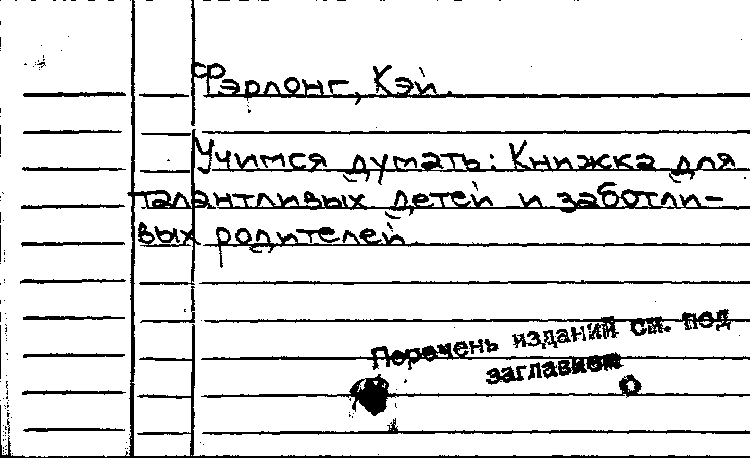 Фэрлонг, Кэй.
Учимся думать: Книжка для
талантливых детей и заботли-
вых родителей.
Перечень изданий см. под
заглавием